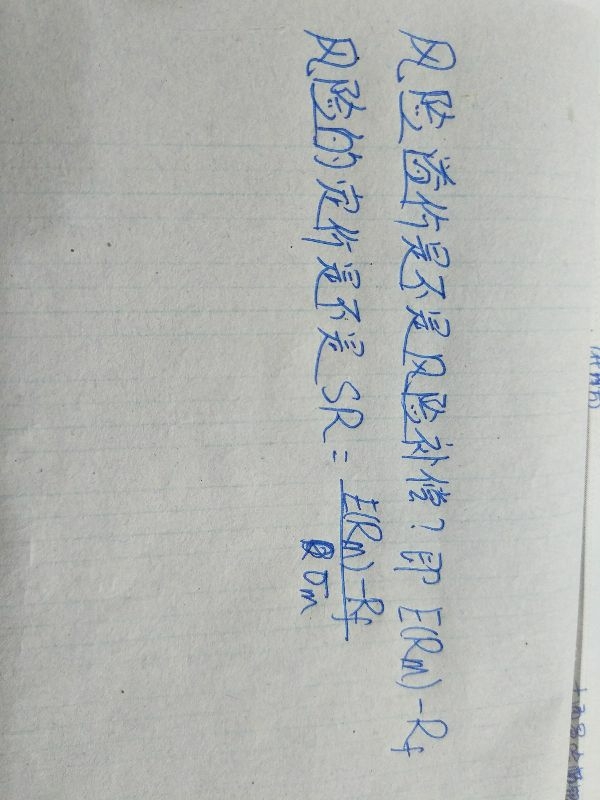 风险溢价是不是风险补偿?即 E(Rm)-Rf
风险的定价是不是 SR = \frac{E(Rm)-Rf}{σm}